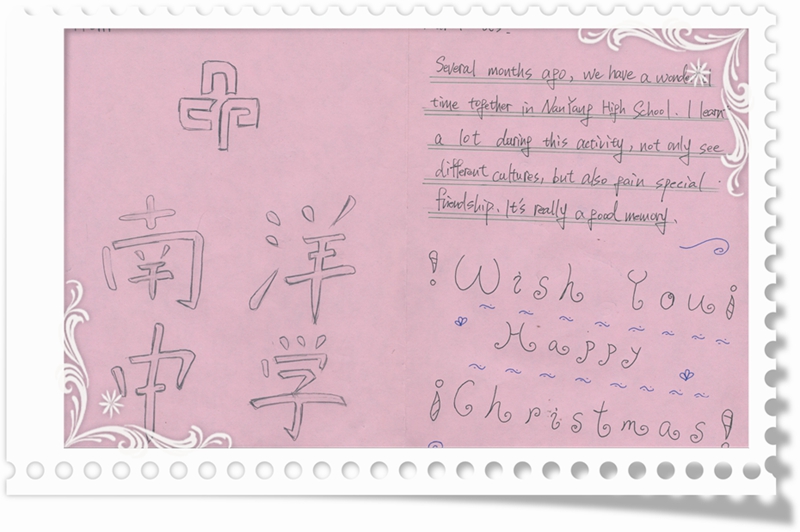 南 洋
中 学
Several months ago, we have a
time together in NanYang High School. I learn
a lot during this activity, not only see
different cultures, but also gain special
friendship. It's really a good memory.
Wish You
Happy
Christmas